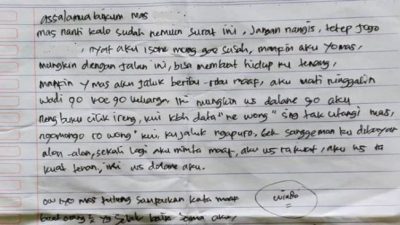 assalamualaikum mas
mas nanti kalo sudah nemuin surat ini, jangan nangis, tetep jogo
, nyat aku isone mung gae susah, mangkin aku yo mas,
mungkin dengan jalan ini, bisa membuat hidup ku tenang,
mangkin yo mas aku jaluk beribu-ribu maap, aku mati ninggalin
wadi go koe go keluarga. Iki mungkin ws dalane go aku
neng buku cilik ireng, kui kbh data" ne wong" sing tak utangi mas,
ngomongo ro wong" kui. ku jaluk ngapuro, sek sanggeman ku dibayar
alon-alon, sekali lagi aku minta maap, aku ws ra kuat, aku ws ra
kuat tenan, iki ws dalane aku.
oh yo mas tulung sampaikan kata maap
buat orang2 yg selalu baik sama aku,